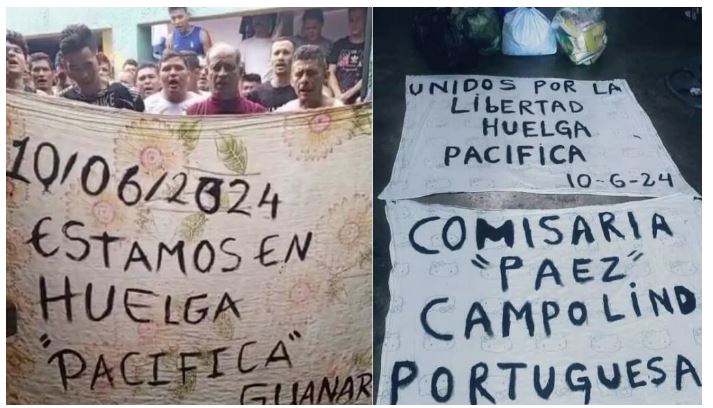 10/06/2024
ESTAMOS EN
HUELGA
"PACIFICA"
GUANAR
UNIDOS POR LA
LIbERTAD
HUELGA
PACIFICA
10-6-24
COMISARIA
"PAEZ"
CAMPOLiND
PORTUGUESA